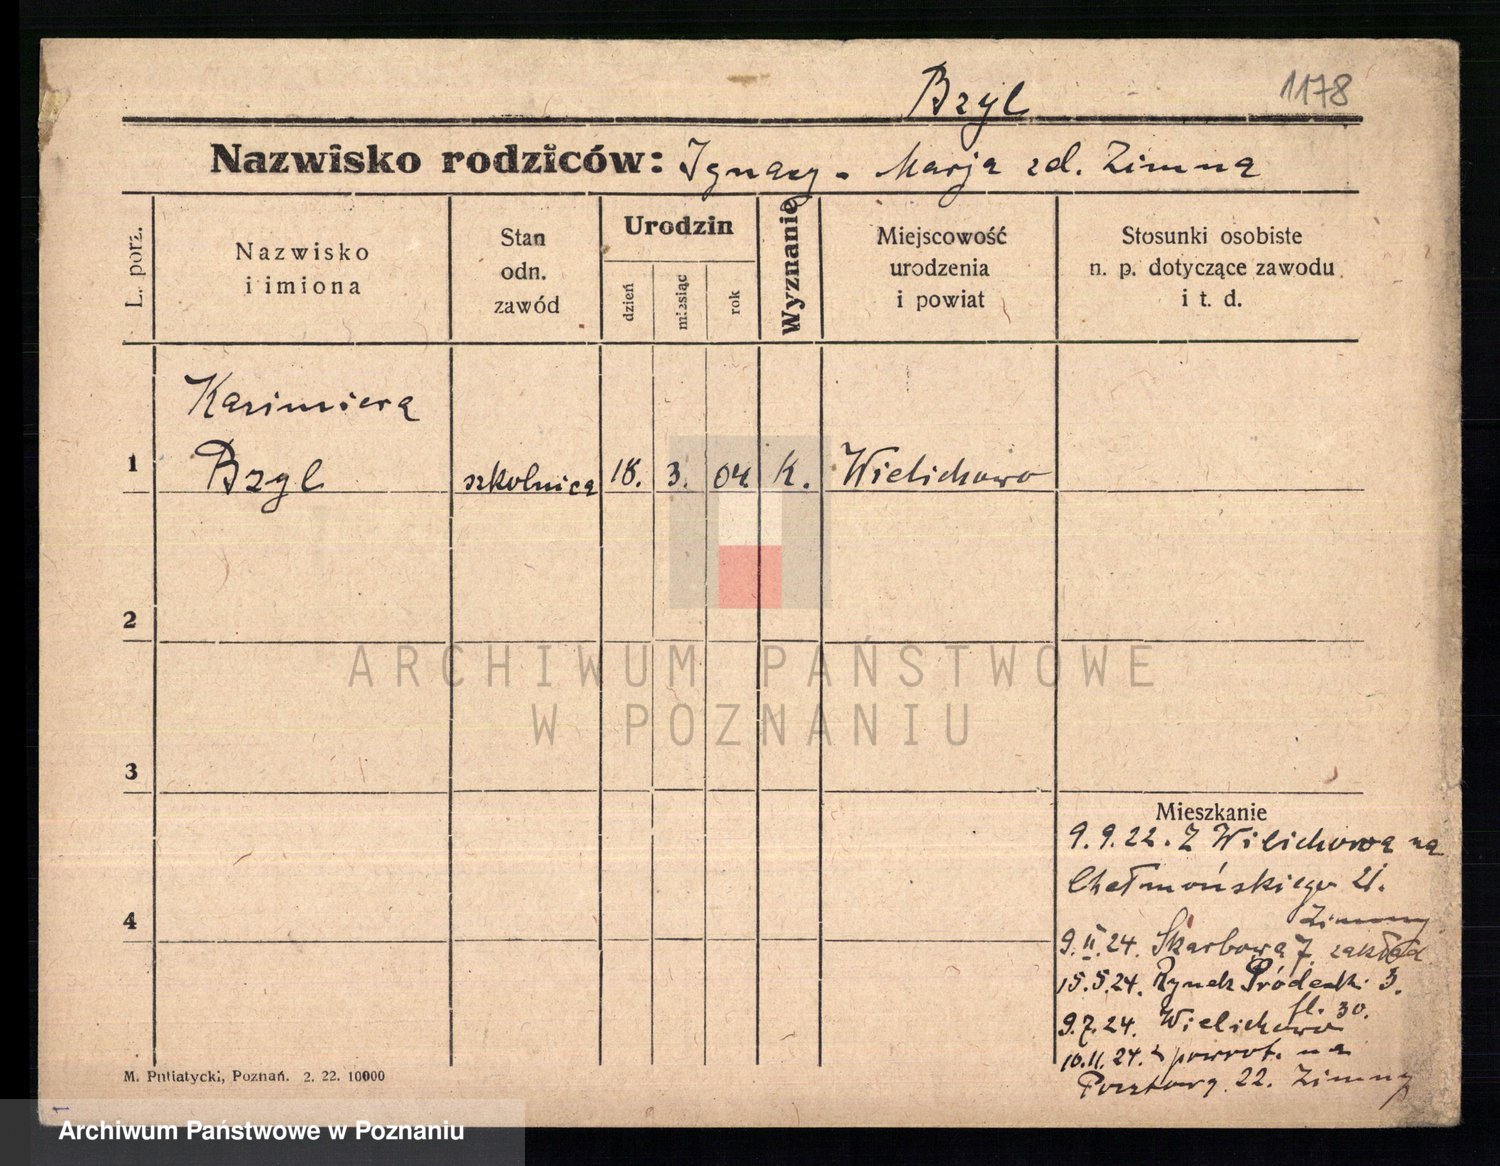 Bzyl
1178
Nazwisko rodziców: Ignacy - Marja zd. Zimna
L. porz.
Nazwisko
i imiona
Stan
odn.
zawód
Urodzin
dzień
miesiąc
rok
Wyznanie
Miejscowość
urodzenia
i powiat
Stosunki osobiste
n. p. dotyczące zawodu
i t. d.
1
Kazimiera
Bzyl
szkolnica
18. 3. 04 K. Wielichowo
2
3
4
Mieszkanie
9.9.22. Z Wilichowa na
Chełmońskiego 21.
Zimny
9.II.24. Skarbowa 7. zakład
15.5.24. Rynek Śródecki 3.
fl. 30.
9.7.24. Wielichowo
10.11.24. z powrot. na
Pocztową 22. Zimny
M. Putiatycki, Poznań. 2. 22. 10000
ARCHIWUM PAŃSTWOWE
W POZNANIU
Archiwum Państwowe w Poznaniu